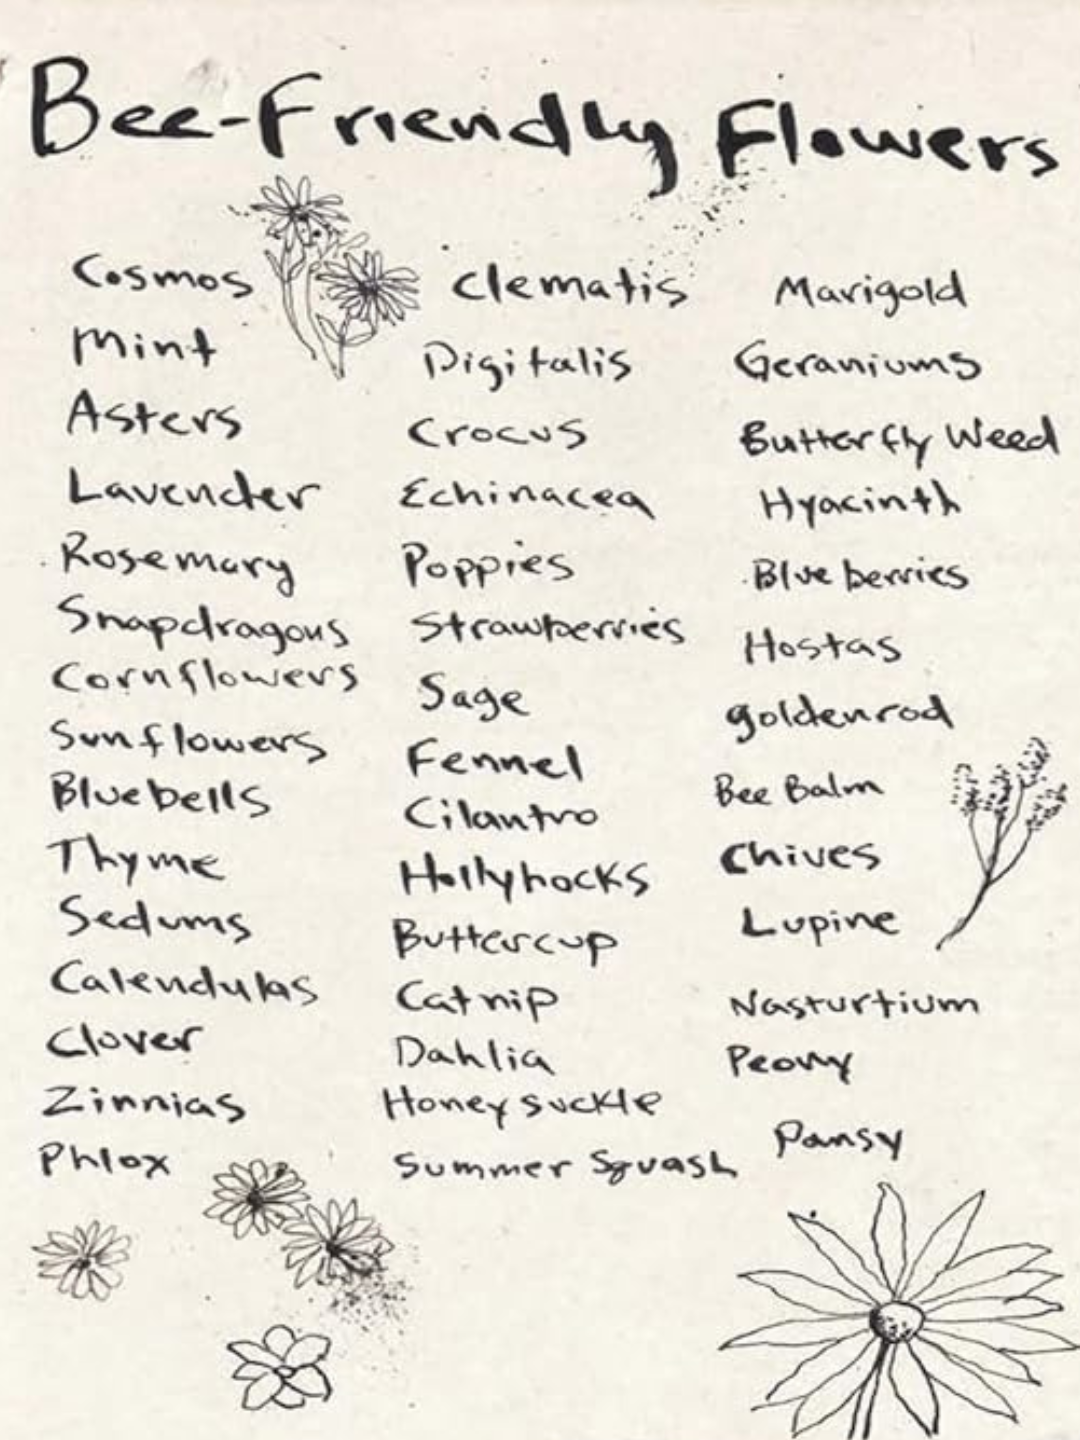 Bee-Friendly Flowers
Cosmos
Mint
Asters
Lavender
Rosemary
Snapdragons
Cornflowers
Sunflowers
Bluebells
Thyme
Sedums
Calendulas
Clover
Zinnias
Phlox
Clematis
Digitalis
Crocus
Echinacea
Poppies
Strawberries
Sage
Fennel
Cilantro
Hollyhocks
Buttercup
Catnip
Dahlia
Honeysuckle
Summer Squash
Marigold
Geraniums
Butterfly Weed
Hyacinth
Blueberries
Hostas
goldenrod
Bee Balm
Chives
Lupine
Nasturtium
Peony
Pansy